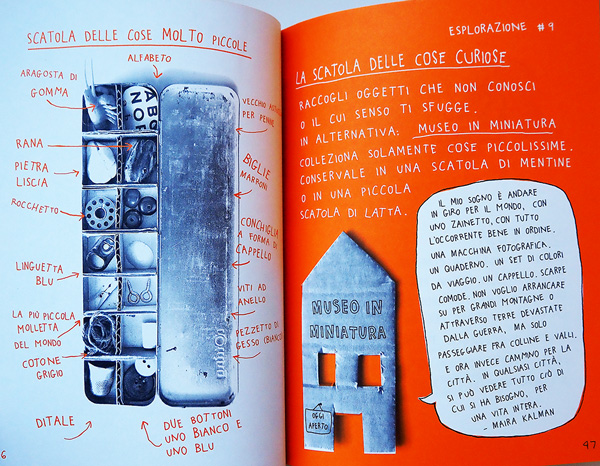 SCATOLA DELLE COSE MOLTO PICCOLE
ALFABETO
ARAGOSTA DI
GOMMA
RANA
PIETRA
LISCIA
ROCCHETTO
LINGUETTA
BLU
LA PIÙ PICCOLA
MOLLETTA
DEL MONDO
COTONE
GRIGIO
DITALE
VECCHIO
PER PENNE
BIGLIE
MARRONI
CONCHIGLIA
A FORMA DI
CAPPELLO
VITI AD
ANELLO
PEZZETTO DI
GESSO (BIANCO)
DUE BOTTONI
UNO BIANCO E
UNO BLU
6
ESPLORAZIONE #9
LA SCATOLA DELLE COSE CURIOSE
RACCOGLI OGGETTI CHE NON CONOSCI
O IL CUI SENSO TI SFUGGE.
IN ALTERNATIVA: MUSEO IN MINIATURA
COLLEZIONA SOLAMENTE COSE PICCOLISSIME.
CONSERVALE IN UNA SCATOLA DI MENTINE
O IN UNA PICCOLA
SCATOLA DI LATTA.
MUSEO IN
MINIATURA
OGGI
APERTO!
IL MIO SOGNO È ANDARE
IN GIRO PER IL MONDO, CON
UNO ZAINETTO, CON TUTTO
L'OCCORRENTE BENE IN ORDINE.
UNA MACCHINA FOTOGRAFICA.
UN QUADERNO. UN SET DI COLORI
DA VIAGGIO. UN CAPPELLO. SCARPE
COMODE. NON VOGLIO ARRANCARE
SU PER GRANDI MONTAGNE O
ATTRAVERSO TERRE DEVASTATE
DALLA GUERRA, MA SOLO
PASSEGGIARE FRA COLLINE E VALLI.
E ORA INVECE CAMMINO PER LA
CITTÀ. IN QUALSIASI CITTÀ,
SI PUÒ VEDERE TUTTO CIÒ DI
CUI SI HA BISOGNO, PER
UNA VITA INTERA.
- MAIRA KALMAN
47